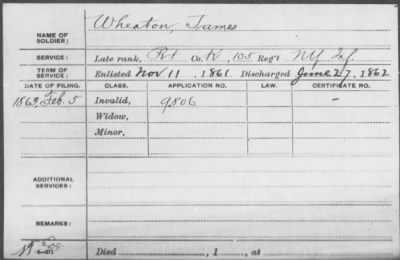 Wheaton, James
NAME OF SOLDIER:
SERVICE: Late rank, Pvt Co. K, 105 Reg't NY Inf.
TERM OF SERVICE: Enlisted Nov 11, 1861. Discharged June 27, 1862
DATE OF FILING. CLASS. APPLICATION NO. LAW. CERTIFICATE NO.
1863, Feb. 5 Invalid, 9806 —
Widow,
Minor,
ADDITIONAL SERVICES:
REMARKS:
Died , 1 , at